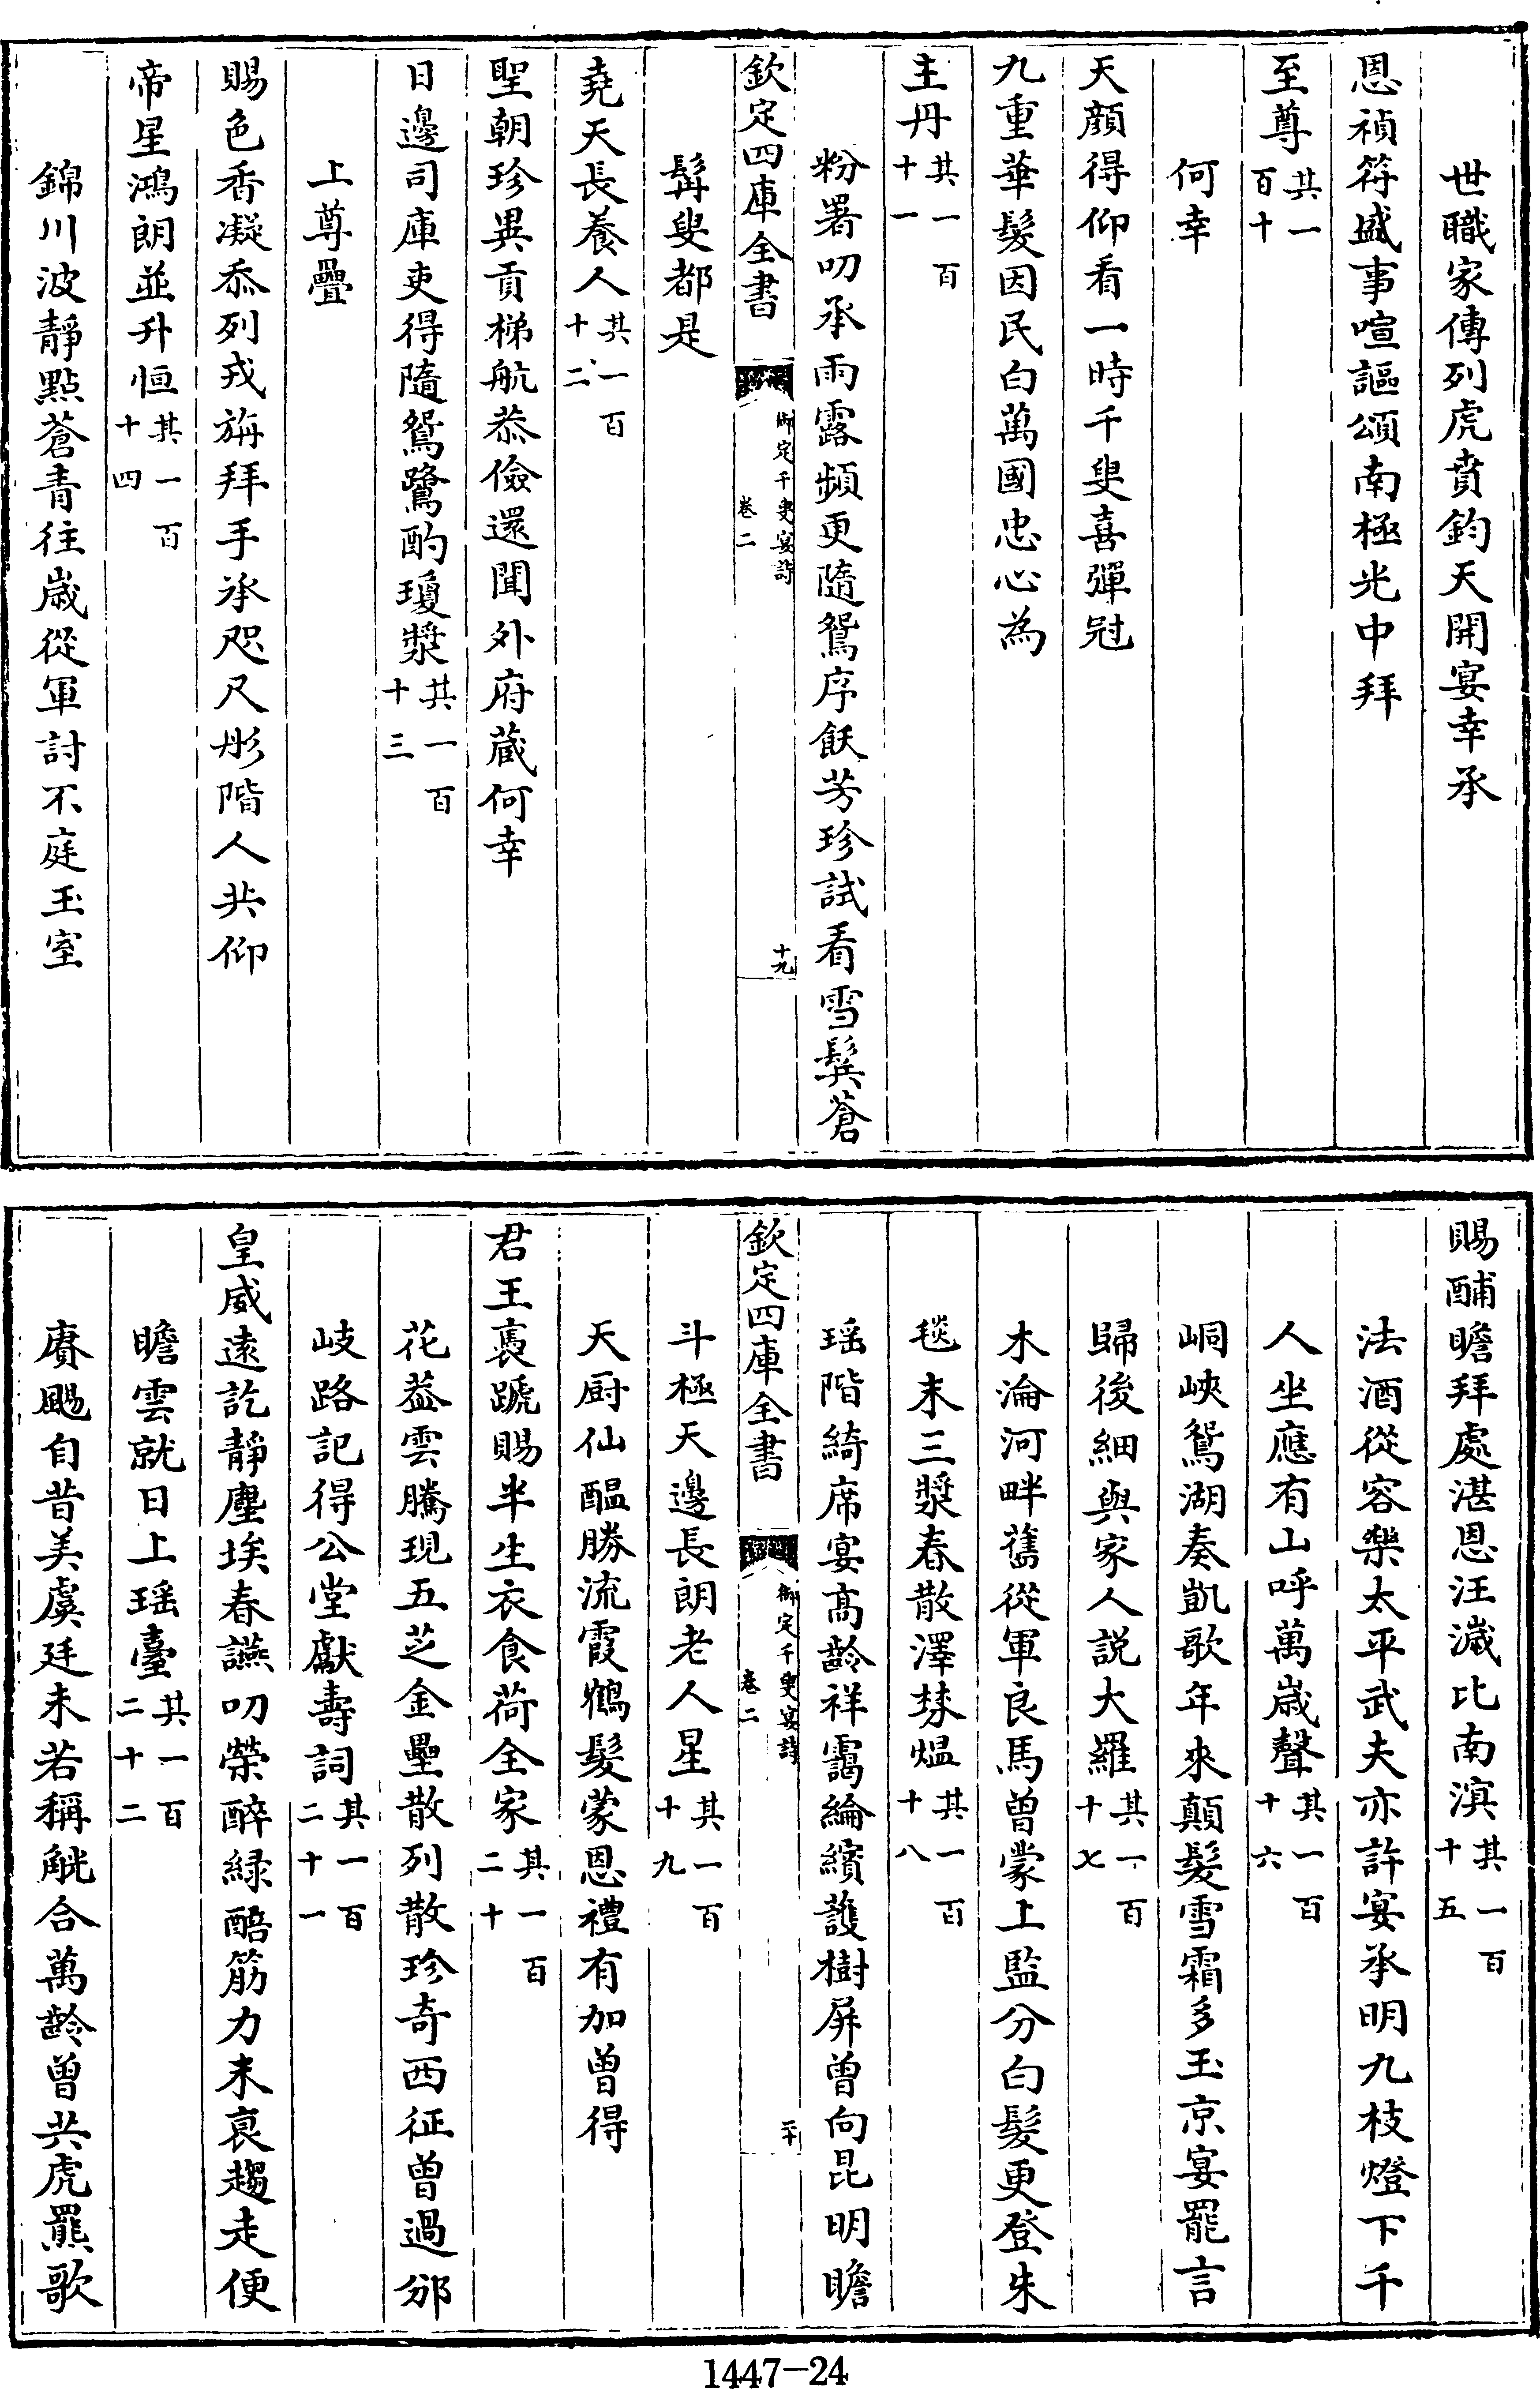 世職家傳列虎賁鈞天開宴幸承
恩禎符盛事喧謳頌南極光中拜
至尊其一百十
何幸
天顔得仰看一時千叟喜彈冠
九重華髮因民白萬國忠心為
主丹其一百十一
粉署叨承雨露頻更隨鴛序飫芳珍試看雪鬂蒼
欽定四庫全書
御定千叟宴詩
卷二
十九
髯叟都是
堯天長養人其一百十二
聖朝珍異貢梯航恭儉還聞外府藏何幸
日邊司庫吏得隨鴛鷺酌瓊漿其一百十三
上尊疊
賜色香凝忝列戎旃拜手承咫尺彤階人共仰
帝星鴻朗並升恒其一百十四
錦川波靜點蒼青往嵗從軍討不庭玉室
賜酺瞻拜處湛恩汪濊比南溟其一百十五
法酒從容樂太平武夫亦許宴承明九枝燈下千
人坐應有山呼萬嵗聲其一百十六
峒峽鴛湖奏凱歌年來顛髮雪霜多玉京宴罷言
歸後細與家人説大羅其一百十七
木淪河畔舊從軍良馬曾蒙上監分白髮更登朱
毯末三漿春散澤棼熅其一百十八
瑶階綺席宴髙齡祥靄綸繽䕶樹屏曾向昆明瞻
欽定四庫全書
御定千叟宴詩
卷二
二十
斗極天邊長朗老人星其一百十九
天厨仙醖勝流霞鶴髮蒙恩禮有加曾得
君王褭蹏賜半生衣食荷全家其一百二十
花葢雲騰現五芝金罍散列散珍奇西征曾過邠
岐路記得公堂獻壽詞其一百二十一
皇威遠訖靜塵埃春讌叨榮醉緑醅筋力未衰趨走便
瞻雲就日上瑶臺其一百二十二
賡颺自昔美虞廷未若稱觥合萬齡曾共虎羆歌
1447-24